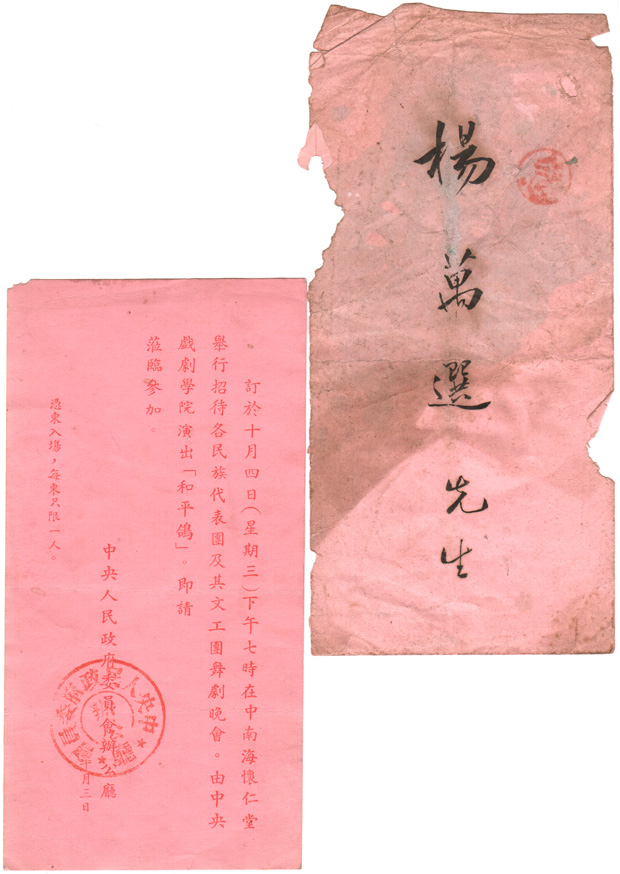 楊萬選先生
訂於十月四日(星期三)下午七時在中南海懷仁堂
舉行招待各民族代表團及其文工團舞劇晚會。由中央
戲劇學院演出「和平鴿」。即請
蒞臨參加。
中央人民政府委員會辦公廳
十月三日
憑柬入場，每柬只限一人。